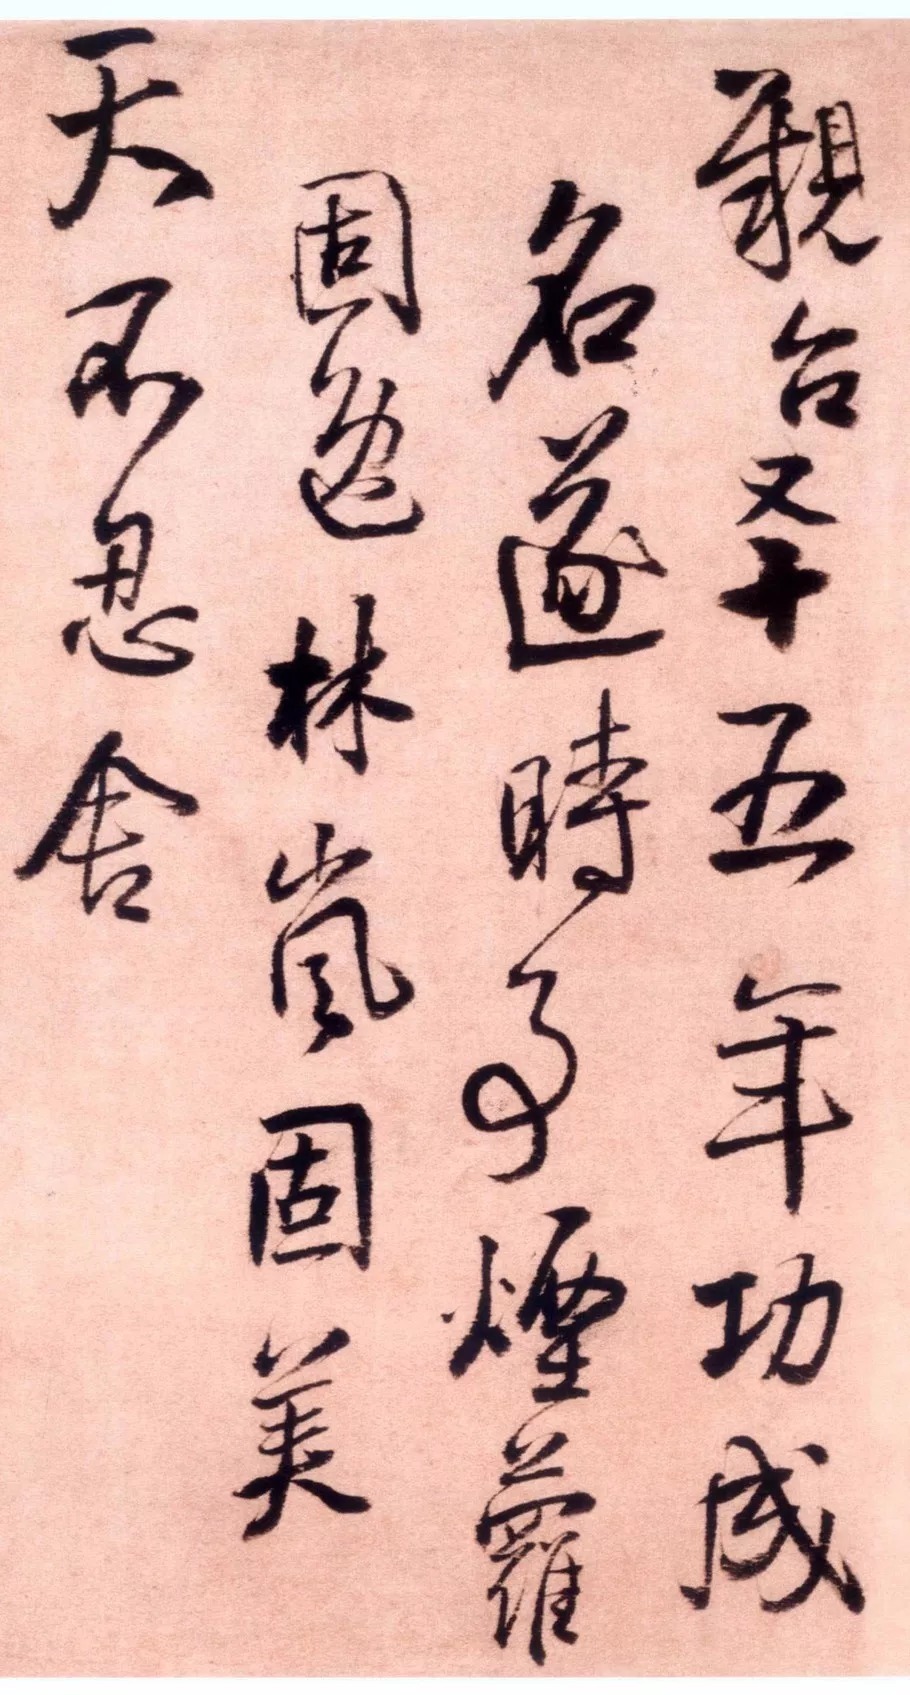 觀台又十五年功成
名遂時事煙蘿
固逸林嵐固美
天不忍舍